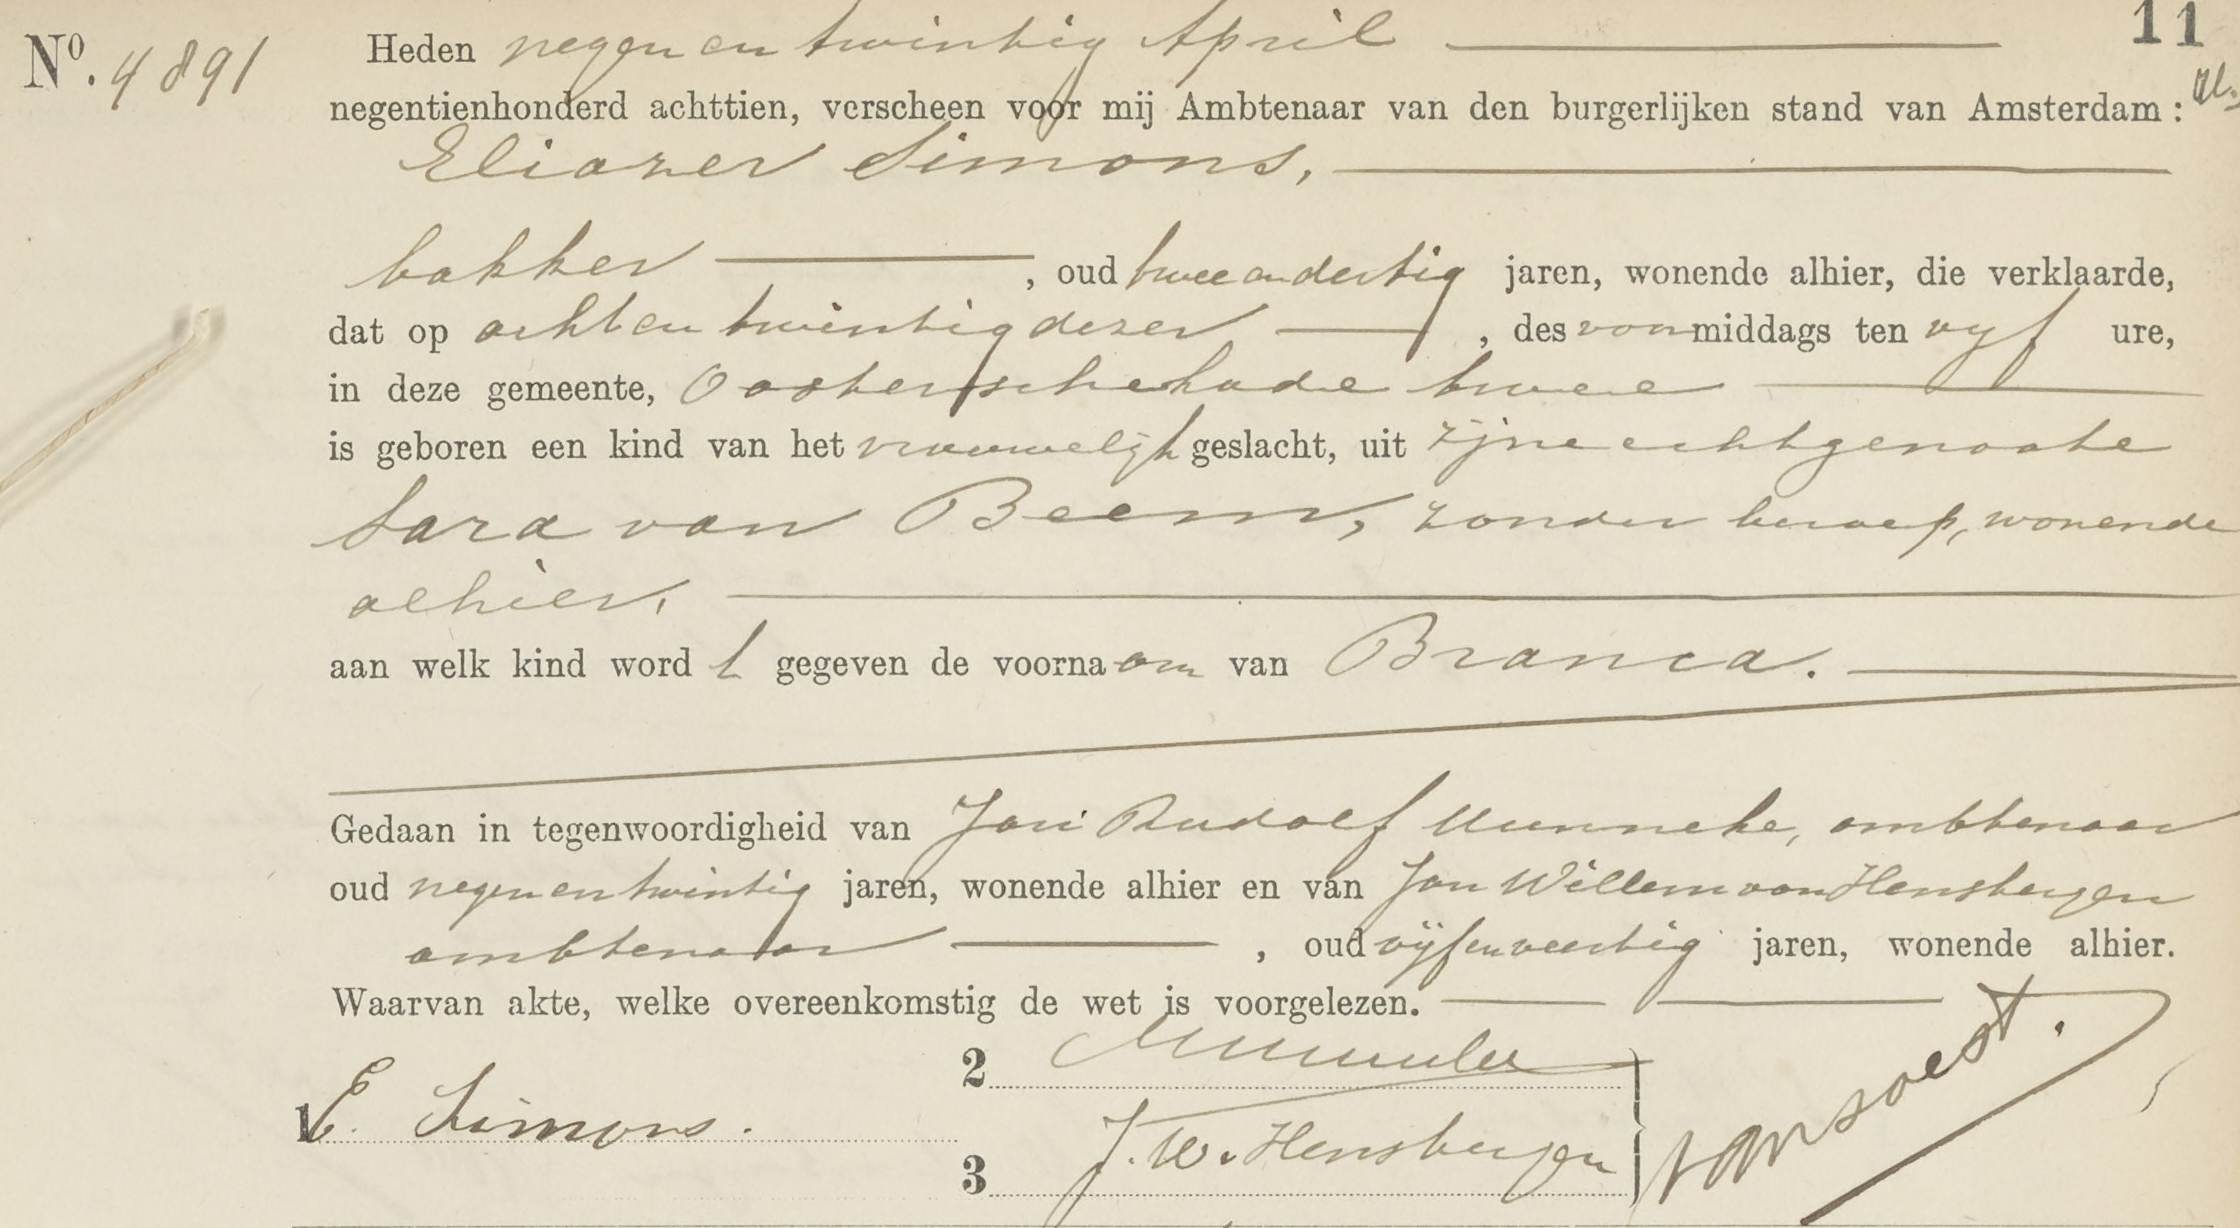 11
Nº. 4891 Heden negen en twintig April
negentienhonderd achttien, verscheen voor mij Ambtenaar van den burgerlijken stand van Amsterdam:
Eliazer Simons,
bakker, oud twee en dertig jaren, wonende alhier, die verklaarde,
dat op acht en twintig dezer, des voormiddags ten vijf ure,
in deze gemeente, Oosterschekade twee
is geboren een kind van het vrouwelijk geslacht, uit zijne echtgenoote
Sara van Beem, zonder beroep, wonende
alhier.
aan welk kind wordt gegeven de voornaam van Branca.
Gedaan in tegenwoordigheid van Jan Rudolf Munneke, ambtenaar
oud negen en twintig jaren, wonende alhier en van Jan Willem van Hensbergen
ambtenaar, oud vijf en veertig jaren, wonende alhier.
Waarvan akte, welke overeenkomstig de wet is voorgelezen.
1 E. Simons.
2
3 J. W. Hensbergen
van Soest.